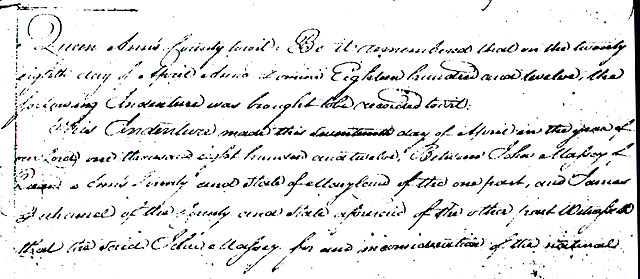 Queen Ann's County to wit: Be it remembered that on the twenty
eighth day of April Anno Domini Eighteen hundred and twelve, the
following Indenture was brought to be recorded to wit:
This Indenture made this seventeenth day of April in the year of
our Lord one thousand eight hundred and twelve, Between John Massey of
Queen Ann's County and State of Maryland of the one part, and James
of the County and State aforesaid of the other part Witnesseth
that the said John Massey for and in consideration of the natural